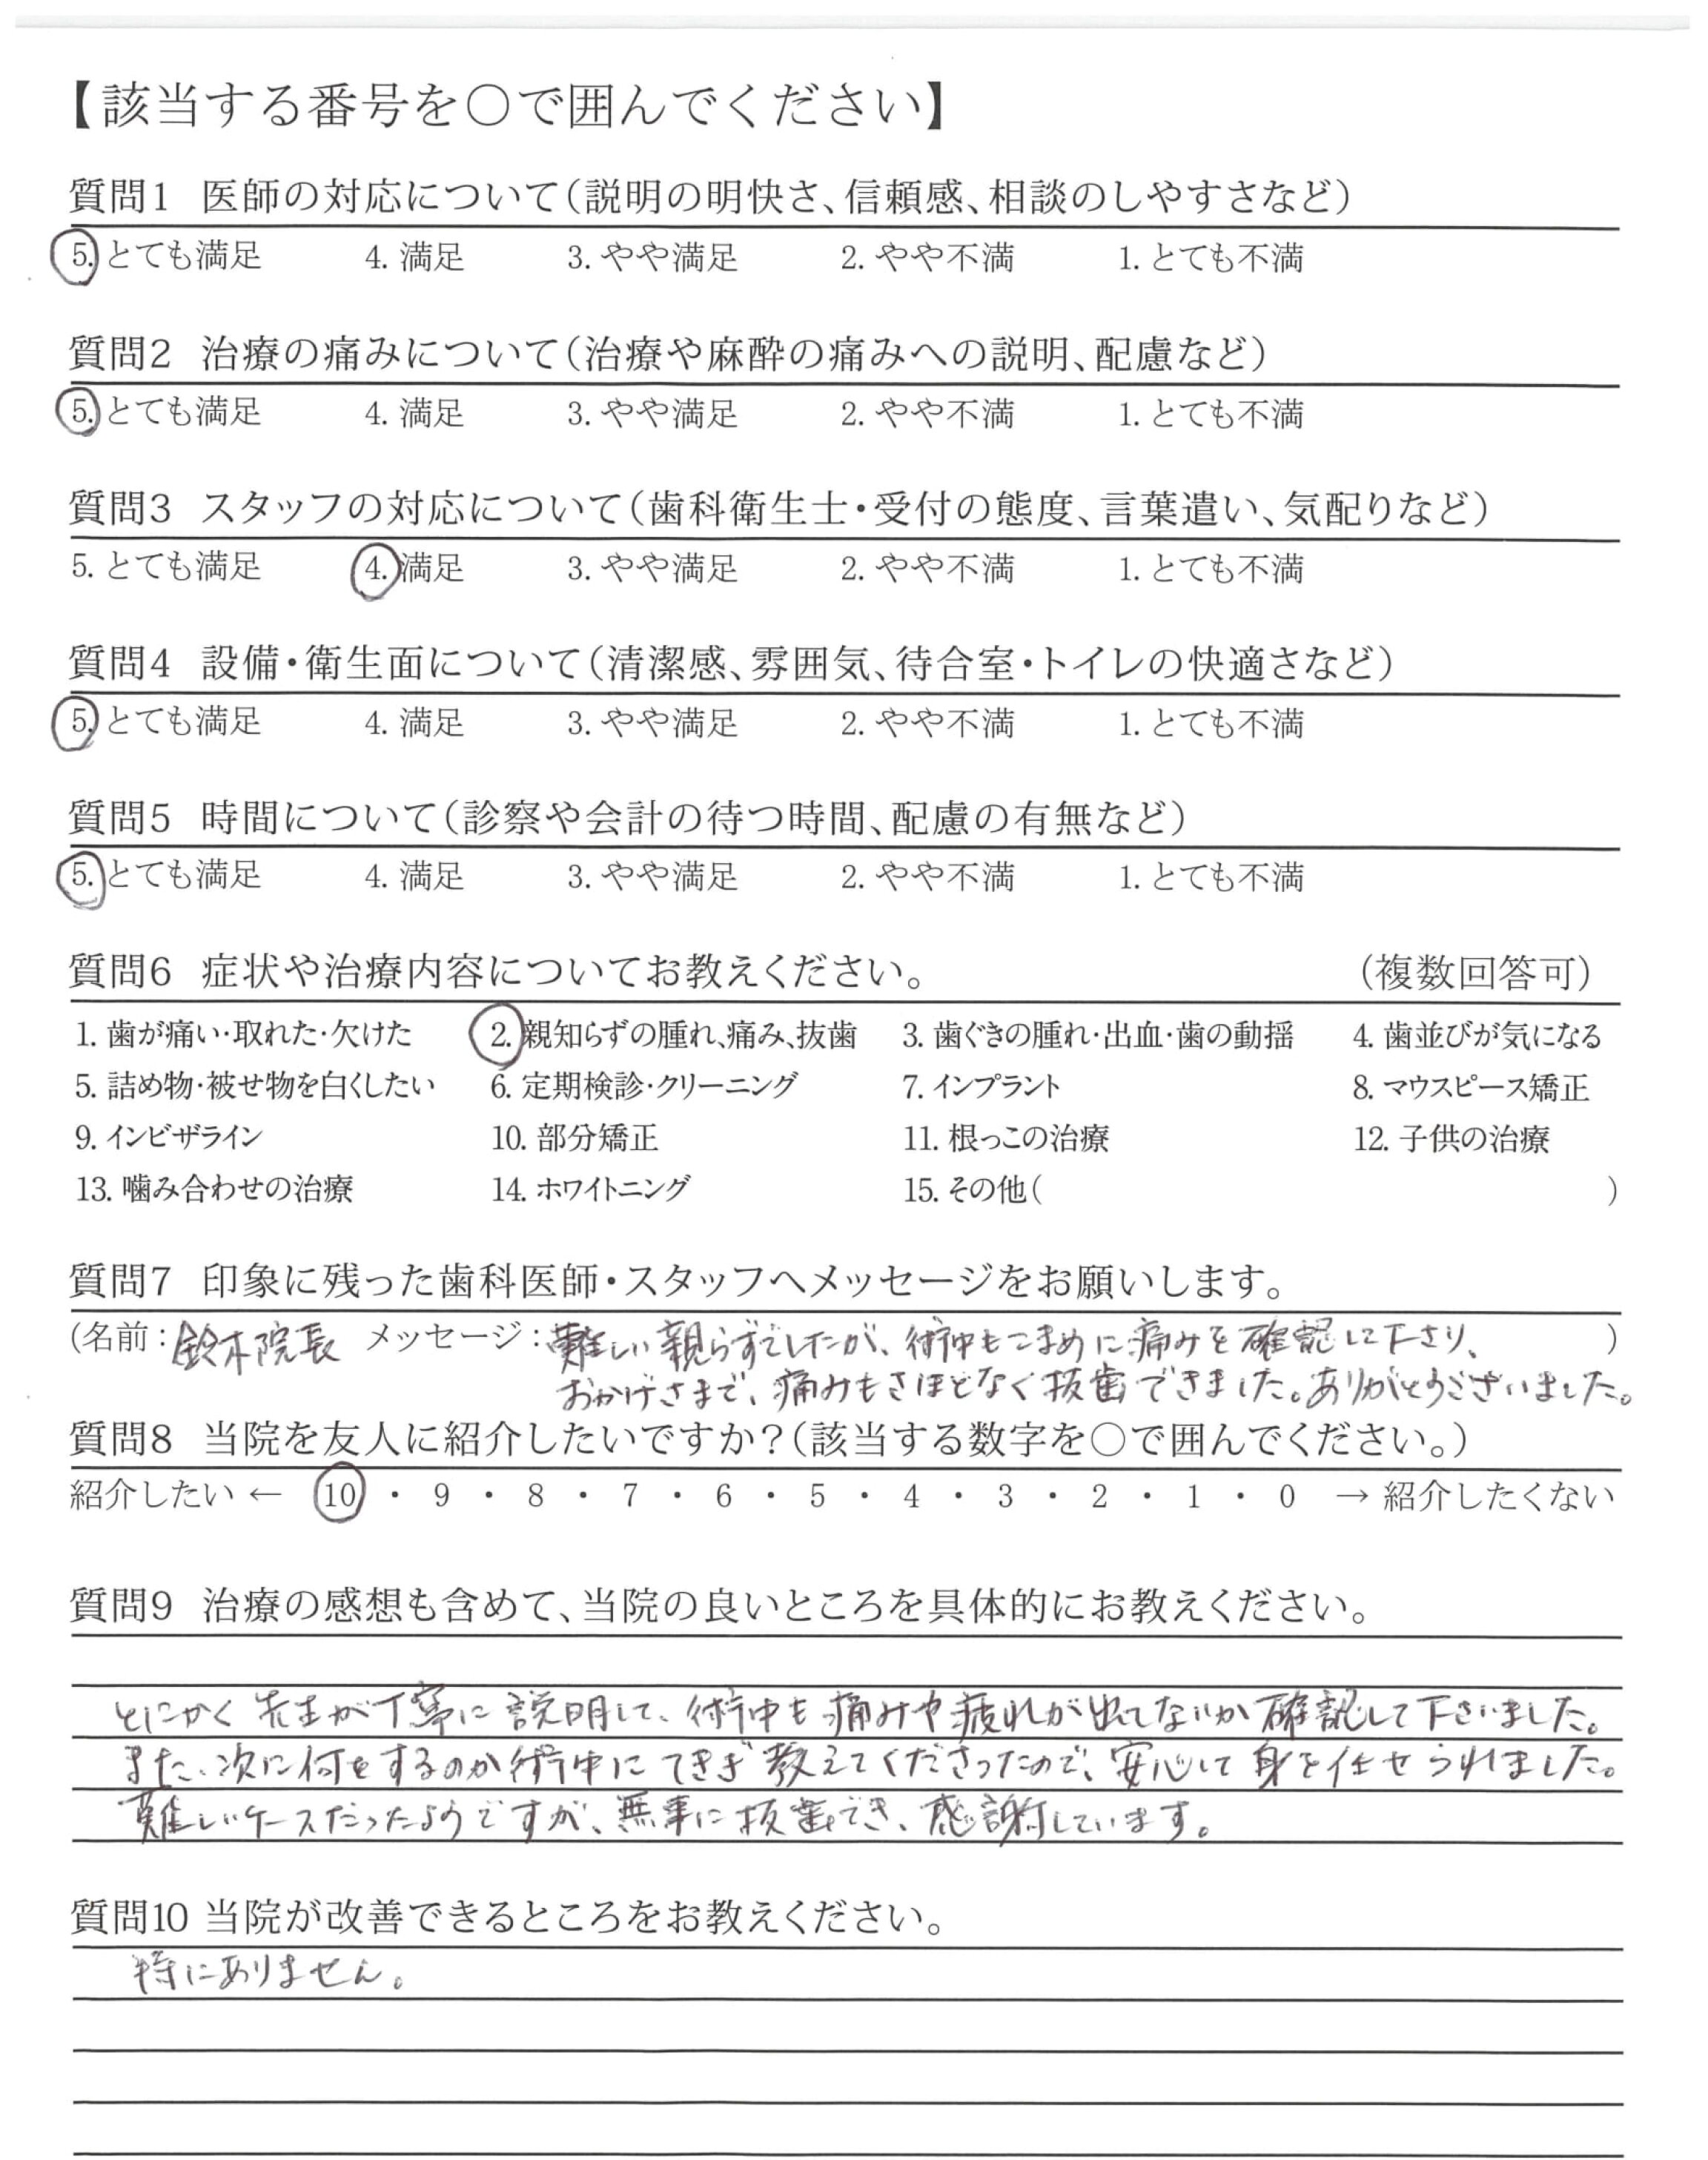 【該当する番号を○で囲んでください】
質問1 医師の対応について（説明の明快さ、信頼感、相談のしやすさなど）
5. とても満足 4. 満足 3. やや満足 2. やや不満 1. とても不満
質問2 治療の痛みについて（治療や麻酔の痛みへの説明、配慮など）
5. とても満足 4. 満足 3. やや満足 2. やや不満 1. とても不満
質問3 スタッフの対応について（歯科衛生士・受付の態度、言葉遣い、気配りなど）
5. とても満足 4. 満足 3. やや満足 2. やや不満 1. とても不満
質問4 設備・衛生面について（清潔感、雰囲気、待合室・トイレの快適さなど）
5. とても満足 4. 満足 3. やや満足 2. やや不満 1. とても不満
質問5 時間について（診察や会計の待つ時間、配慮の有無など）
5. とても満足 4. 満足 3. やや満足 2. やや不満 1. とても不満
質問6 症状や治療内容についてお教えください。 （複数回答可）
1. 歯が痛い・取れた・欠けた 2. 親知らずの腫れ、痛み、抜歯 3. 歯ぐきの腫れ・出血・歯の動揺 4. 歯並びが気になる
5. 詰め物・被せ物を白くしたい 6. 定期検診・クリーニング 7. インプラント 8. マウスピース矯正
9. インビザライン 10. 部分矯正 11. 根っこの治療 12. 子供の治療
13. 噛み合わせの治療 14. ホワイトニング 15. その他（ ）
質問7 印象に残った歯科医師・スタッフへメッセージをお願いします。
（名前：鈴木院長 メッセージ：難しい親らずでしたが、術中もこまめに痛みを確認して下さり、 ）
おかげさまで、痛みもさほどなく抜歯できました。ありがとうございました。
質問8 当院を友人に紹介したいですか？（該当する数字を○で囲んでください。）
紹介したい ← 10 ・ 9 ・ 8 ・ 7 ・ 6 ・ 5 ・ 4 ・ 3 ・ 2 ・ 1 ・ 0 → 紹介したくない
質問9 治療の感想も含めて、当院の良いところを具体的にお教えください。
とにかく先生が丁寧に説明して、術中も痛みや疲れが出てないか確認して下さいました。
また、次に何をするのか術中にてきぎ教えてくださったので、安心して身を任せられました。
難しいケースだったようですが、無事に抜歯でき、感謝しています。
質問10 当院が改善できるところをお教えください。
特にありません。